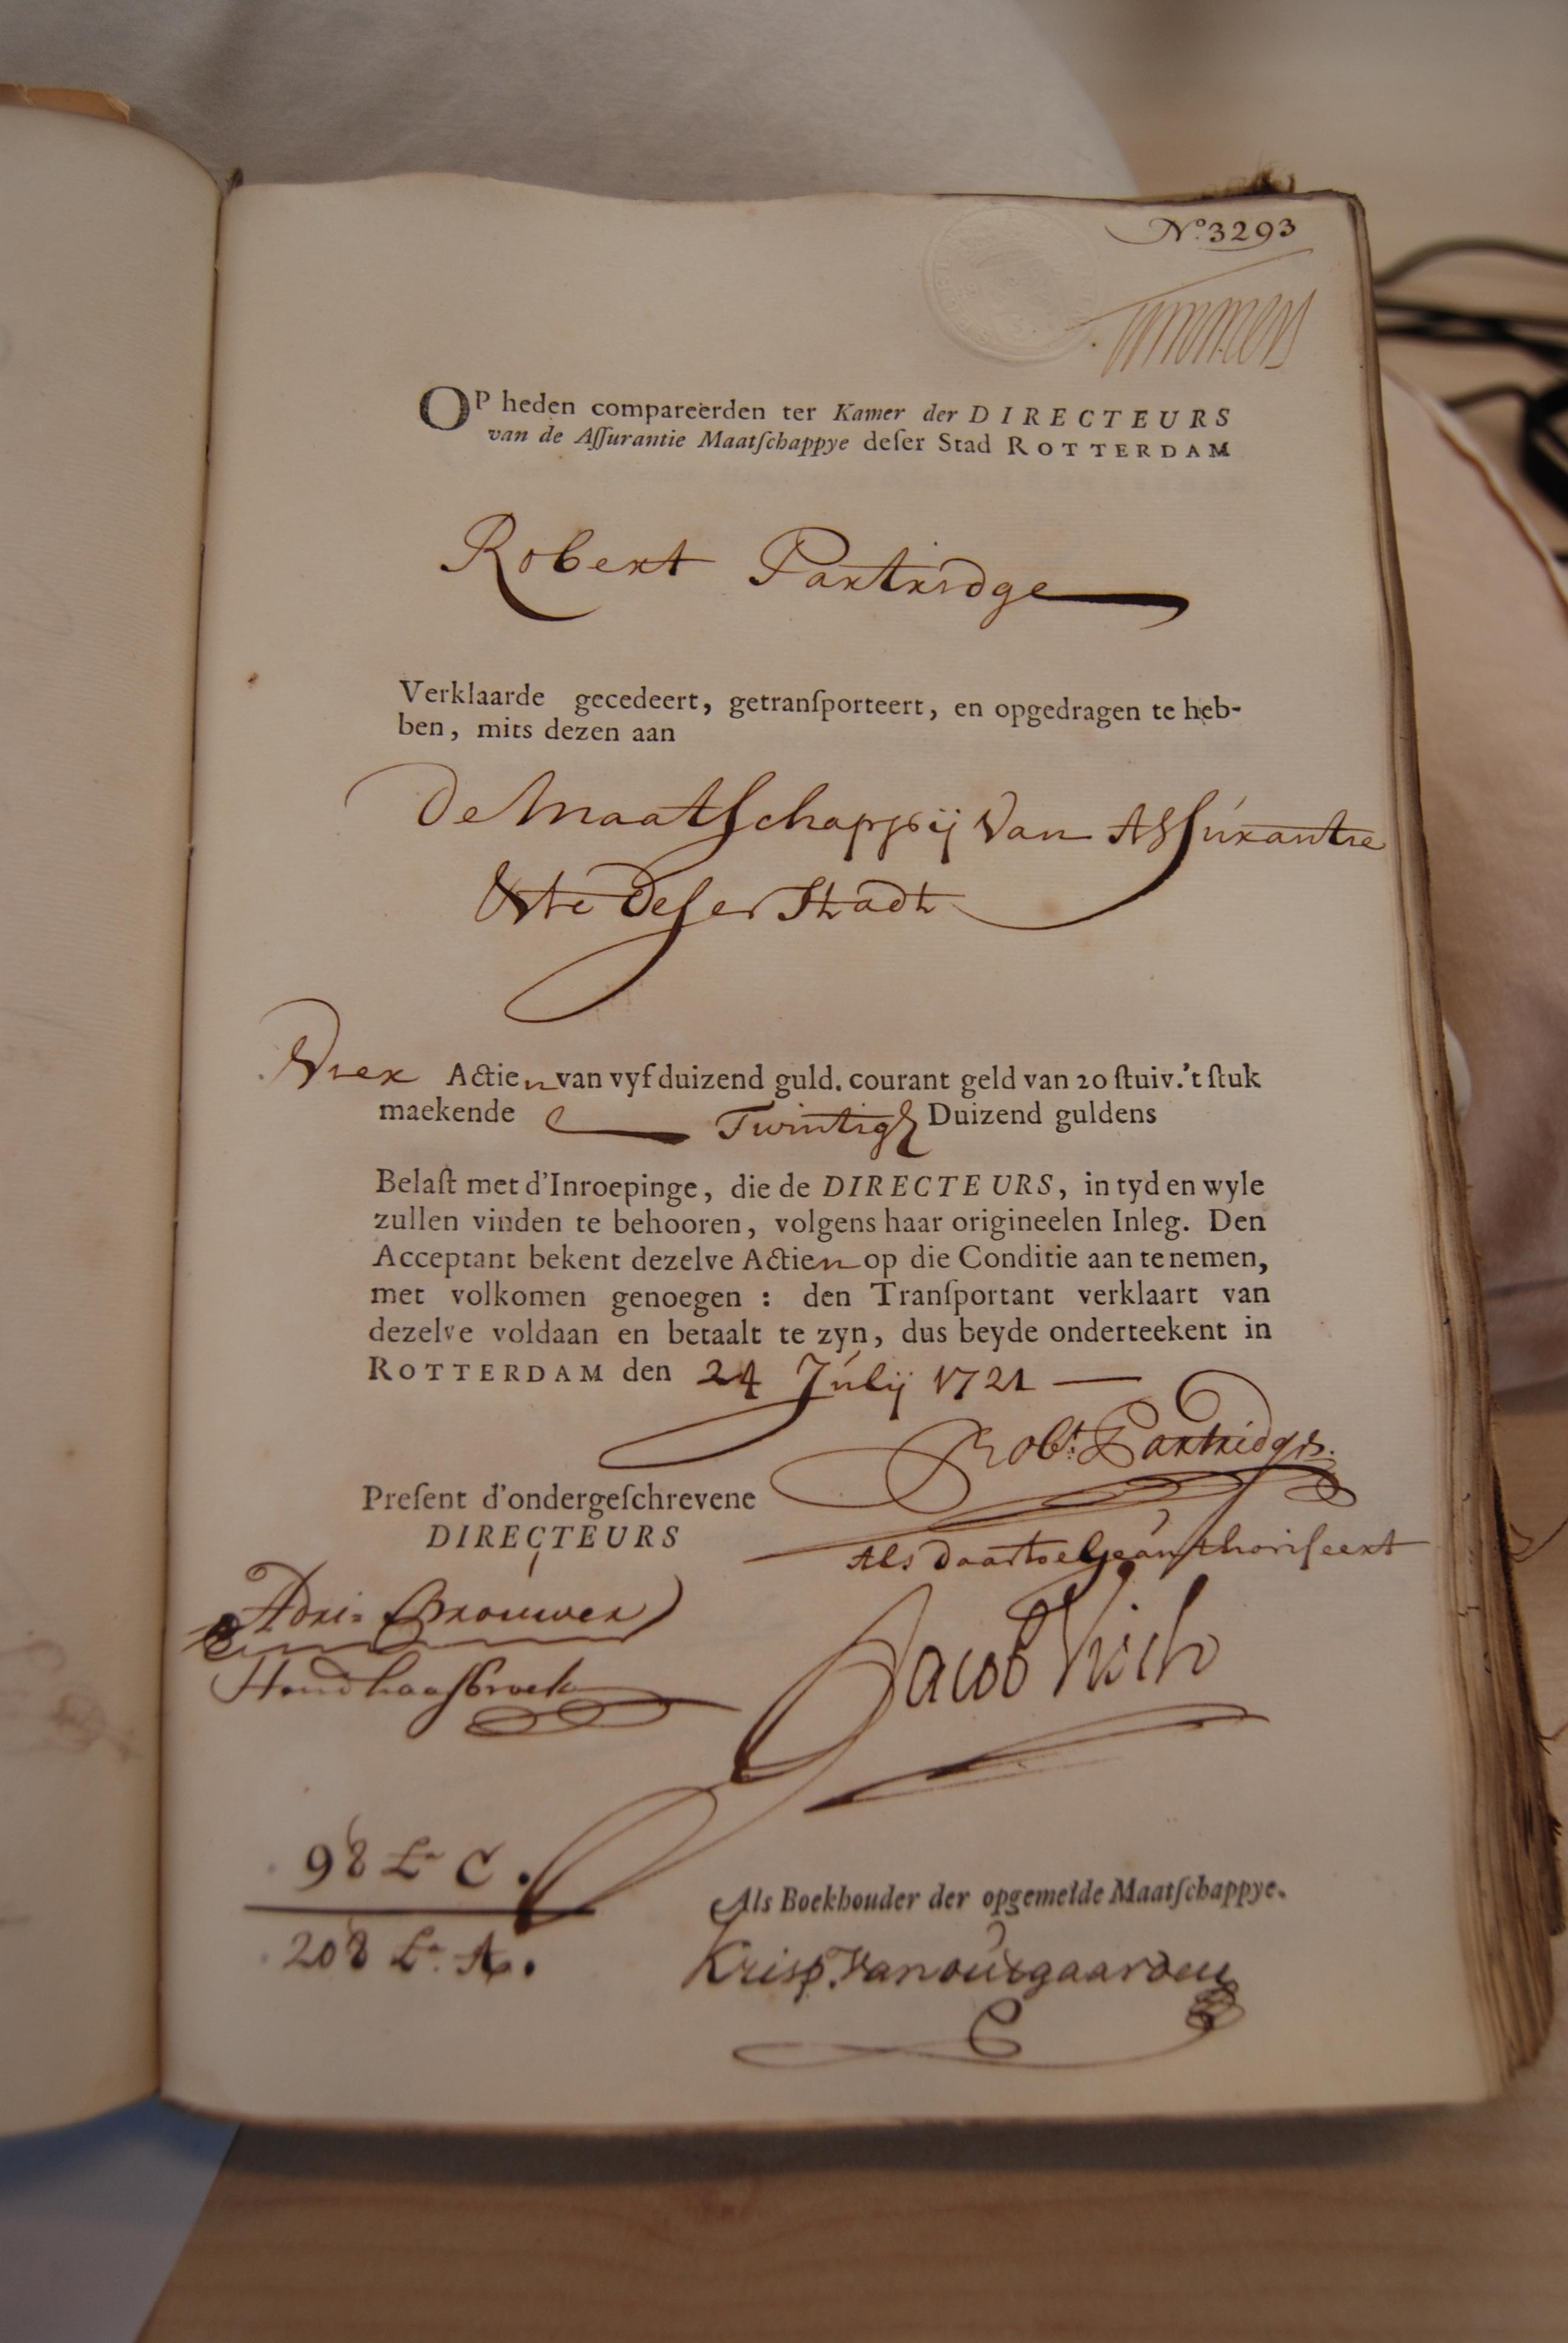 No. 3293
OP heden compareerden ter Kamer der DIRECTEURS
van de Aſſurantie Maatſchappye deſer Stad ROTTERDAM
Robert Partridge
Verklaarde gecedeert, getranſporteert, en opgedragen te heb-
ben, mits dezen aan
De Maatſchappij Van Aſſurantie
&te Deſer Stadt
Vier Actien van vyf duizend guld. courant geld van 20 ſtuiv. 't ſtuk
maekende Twintigh Duizend guldens
Belaſt met d'Inroepinge, die de DIRECTEURS, in tyd en wyle
zullen vinden te behooren, volgens haar origineelen Inleg. Den
Acceptant bekent dezelve Actien op die Conditie aan te nemen,
met volkomen genoegen : den Tranſportant verklaart van
dezelve voldaan en betaalt te zyn, dus beyde onderteekent in
ROTTERDAM den 24 Júlij 1721
Robt. Partridge
Preſent d'ondergeſchrevene
DIRECTEURS
Als daartoe Geauthoriſeert
Adri= Brouwer
Jacob Visch
Hend haaſbroek
98 La C.
Als Boekhouder der opgemelde Maatſchappye.
208 La. A.